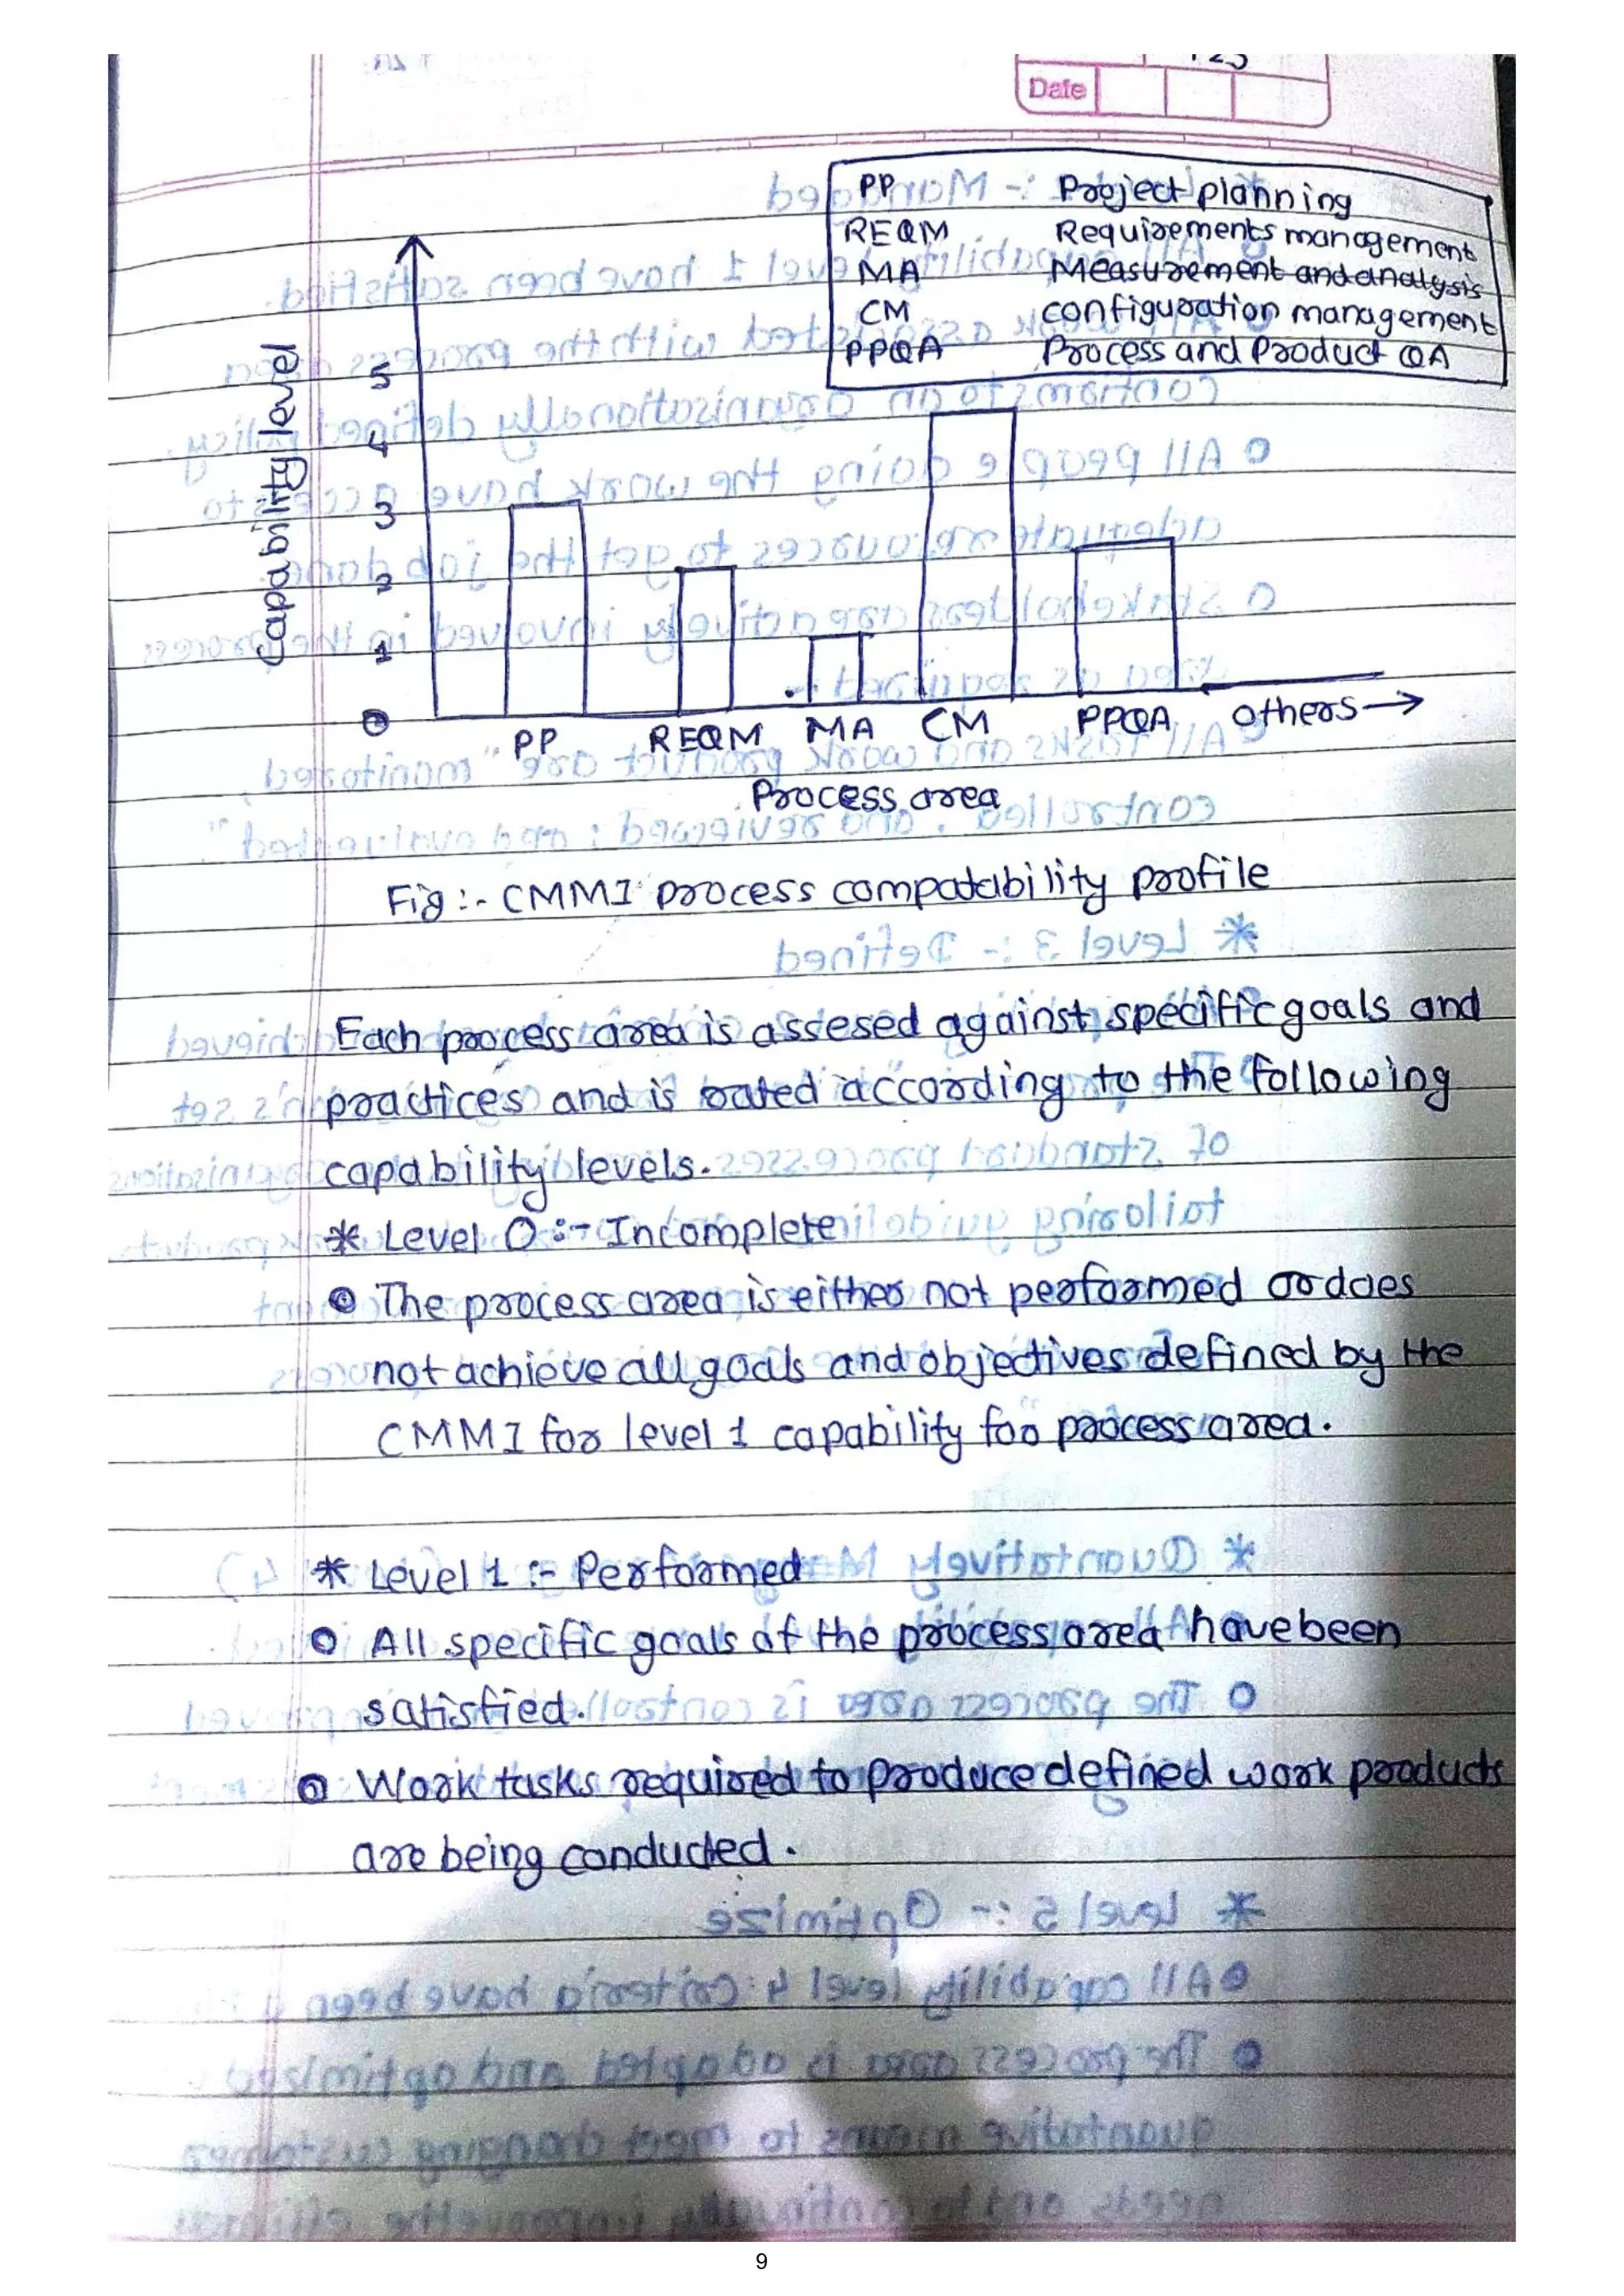 Date
PP Project planning
REQM Requirements management
MA Measurement and analysis
CM configuration management
PPQA Process and Product QA
Capability level
5
4
3
2
1
0
PP REQM MA CM PPQA others →
Process area
Fig :- CMMI process compatability profile
Each process area is assesed against specific goals and
practices and is rated according to the following
capability levels.
* Level 0 :- Incomplete
The process area is either not performed or does
not achieve all goals and objectives defined by the
CMMI for level 1 capability for process area.
* Level 1 :- Performed
All specific goals of the process area have been
satisfied.
Work tasks required to produce defined work products
are being conducted.
9